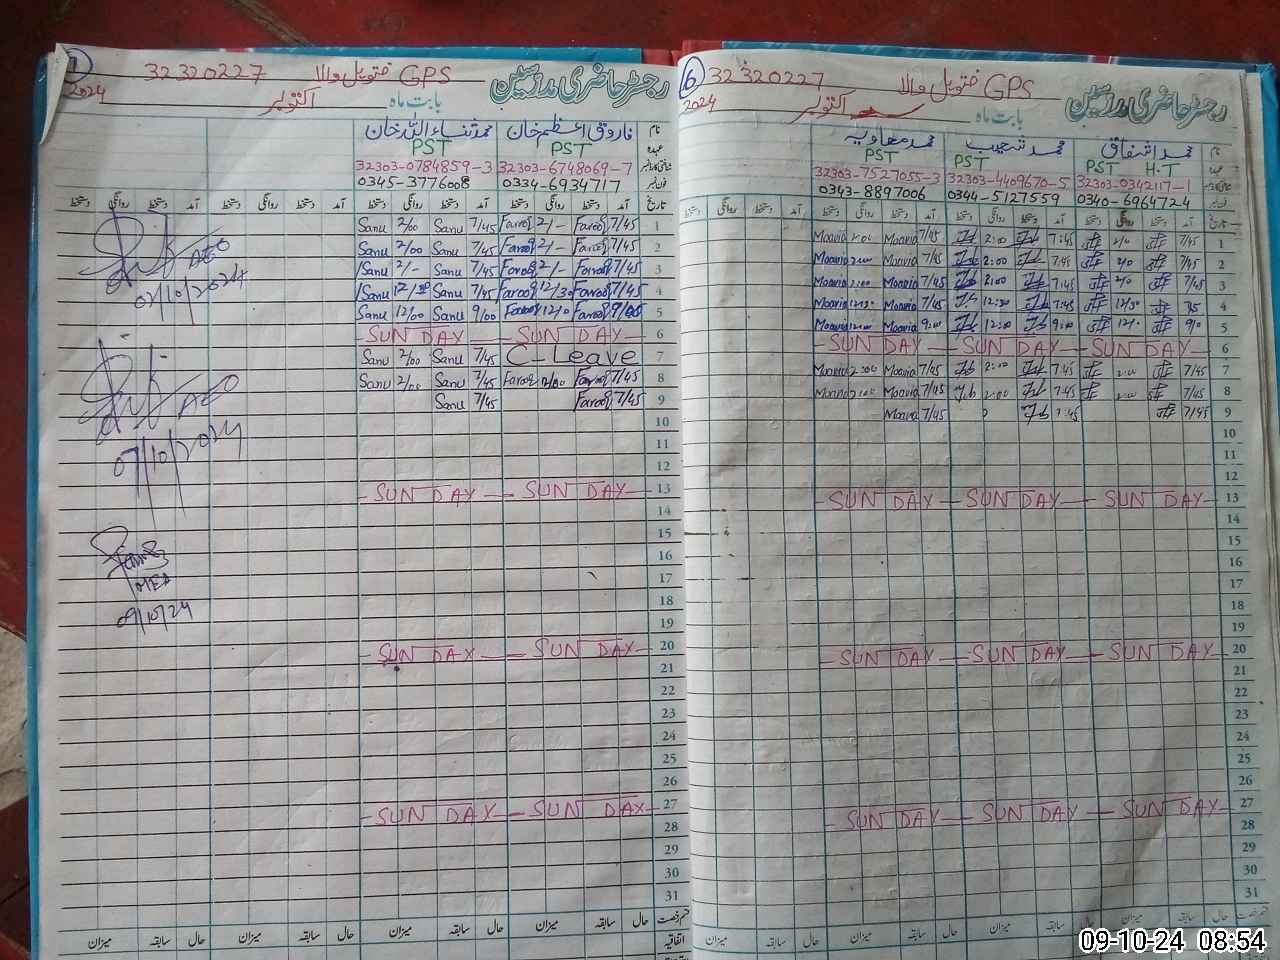 رجسٹر حاضری مدرسین
GPS فتوہیل والا 32320227
6
بابت ماہ اکتوبر 2024
نام
محمد اشفاق
محمد شعیب
محمد معاویہ
عہدہ
PST H.T
PST
PST
32303-0342117-1
32303-4409670-5
32303-7527055-3
فون نمبر
0340-6964724
0344-5127559
0343-8897006
تاریخ آمد دستخط روانگی دستخط آمد دستخط روانگی دستخط آمد دستخط روانگی دستخط آمد دستخط روانگی دستخط
7/45 2:00 7:45 2:00 Moavia 7/45 Moavia 2:00
2 7/45 7:45 2:00 7/45 Moavia
3 7/45 7:45 2:00 7/45 Moavia
4 12/30 7:45 12:30 7/45 Moavia 12:30
5 9/0 9:00 12:00 9:00 Moavia 12:00
6 SUN DAY SUN DAY SUN DAY
7 7/45 7:45 2:00 7/45 Moavia 2:00
8 7/45 7:45 2:00 7/45 Moavia 2:00
9 7/45 7:45 7/45 Moavia
10
11
12
13 SUN DAY SUN DAY SUN DAY
14
15
16
17
18
19
20 SUN DAY SUN DAY SUN DAY
21
22
23
24
25
26
27 SUN DAY SUN DAY SUN DAY
28
29
30
31
حال سابقہ میزان حال سابقہ میزان حال سابقہ میزان
رجسٹر حاضری مدرسین
GPS فتوہیل والا 32320227
بابت ماہ اکتوبر 2024
نام
فاروق اعظم خان
محمد ثناء اللہ خان
عہدہ
PST
PST
شناختی کارڈ نمبر
32303-6748069-7
32303-0784859-3
فون نمبر
0334-6934717
0345-3776008
تاریخ آمد دستخط روانگی دستخط آمد دستخط روانگی دستخط آمد دستخط روانگی دستخط آمد دستخط روانگی دستخط
1 7/45 Farooq 2/- Farooq 7/45 Sanu 2/00 Sanu
2 7/45 Farooq 2/- Farooq 7/45 Sanu 2/00 Sanu
3 7/45 Farooq 2/- Farooq 7/45 Sanu 2/- Sanu
4 7/45 Farooq 12/30 Farooq 7/45 Sanu 12/30 Sanu
5 Farooq 12/0 Farooq 9/00 Sanu 12/00 Sanu
6 SUN DAY SUN DAY
7 C-Leave 7/45 Sanu 2/00 Sanu
8 7/45 Farooq Farooq 7/45 Sanu 2/00 Sanu
9 7/45 Farooq 7/45 Sanu
10
11
12
13 SUN DAY SUN DAY
14
15
16
17
18
19
20 SUN DAY SUN DAY
21
22
23
24
25
26
27 SUN DAY SUN DAY
28
29
30
31
اتفاقیہ
حال سابقہ میزان حال سابقہ میزان حال سابقہ میزان حال سابقہ میزان
AEO
02/10/2024
AEO
07/10/2024
MEA
09/10/24
09-10-24 08:54